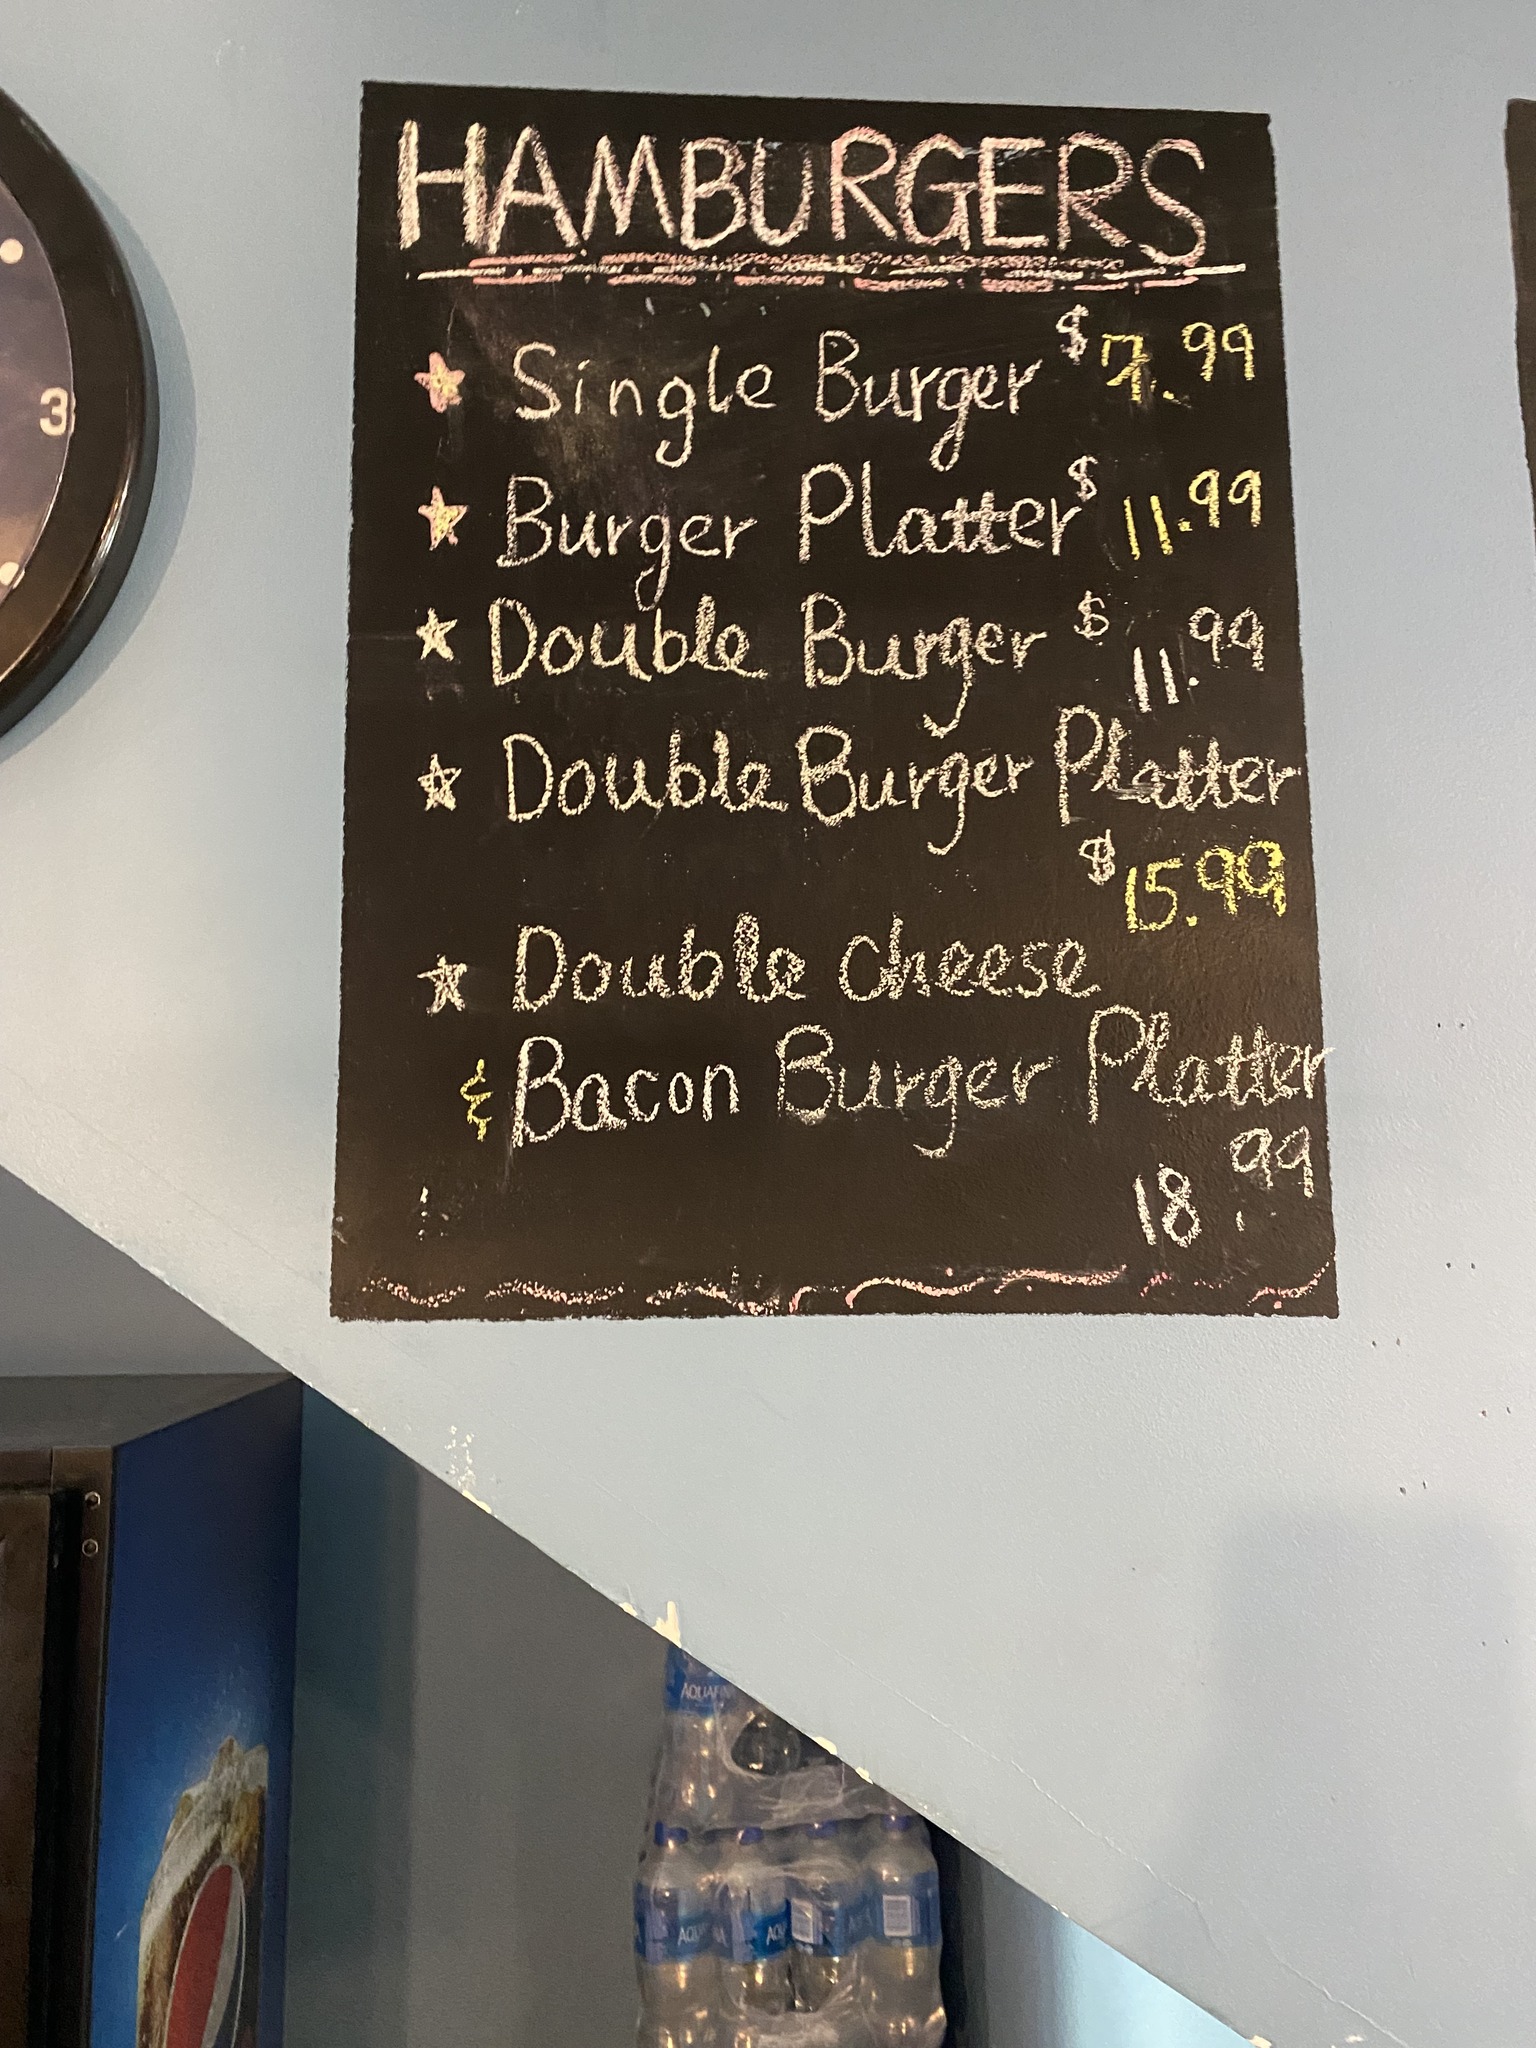 HAMBURGERS
Single Burger $7.99
Burger Platter $11.99
Double Burger $11.99
Double Burger Platter
$15.99
Double cheese
& Bacon Burger Platter
18.99
3
AQUAFINA